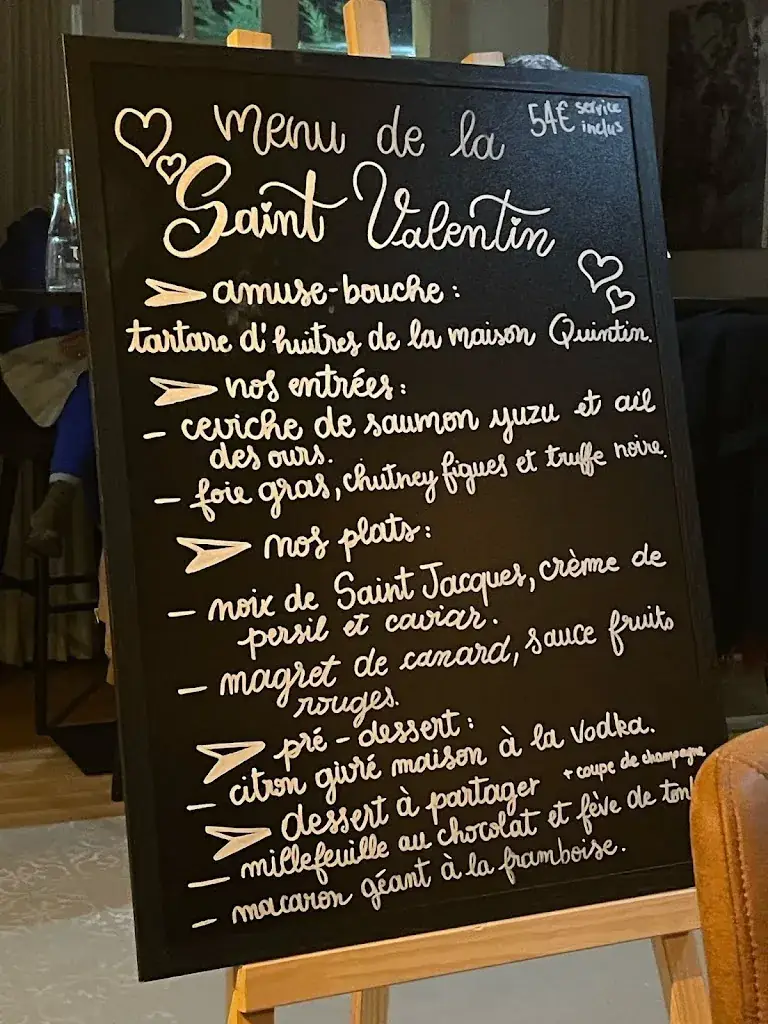 menu de la
54€ service
inclus
Saint Valentin
amuse-bouche :
tartare d'huitres de la maison Quintin.
nos entrées :
- ceviche de saumon yuzu et ail
des ours.
- foie gras, chutney figues et truffe noire.
nos plats :
- noix de Saint Jacques, crème de
persil et caviar.
- magret de canard, sauce fruits
rouges.
pré-dessert :
- citron givré maison à la vodka.
dessert à partager + coupe de champagne
- millefeuille au chocolat et fève de
- macaron géant à la framboise.